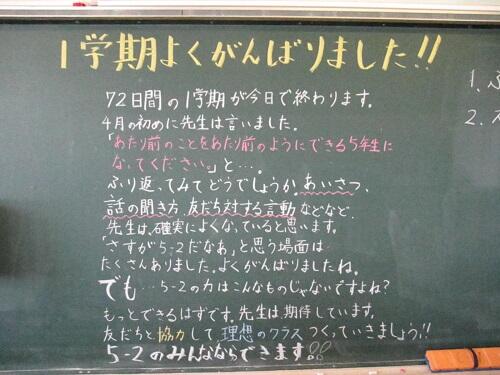 1学期よくがんばりました!!
72日間の1学期が今日で終わります。
4月の初めに先生は言いました。
「あたり前のことをあたり前のようにできる5年生に
なってください。」と…。
ふり返ってみてどうでしょうか。あいさつ、
話の聞き方、友だち対する言動などなど、
先生は、確実によくなっていると思います。
「さすが5-2だなあ」と思う場面は
たくさんありました。よくがんばりましたね。
でも…5-2の力はこんなものじゃないですよね?
もっとできるはずです。先生は期待しています。
友だちと協力して理想のクラスつくっていきましょう!!
5-2のみんなならできます!!
1.
2.